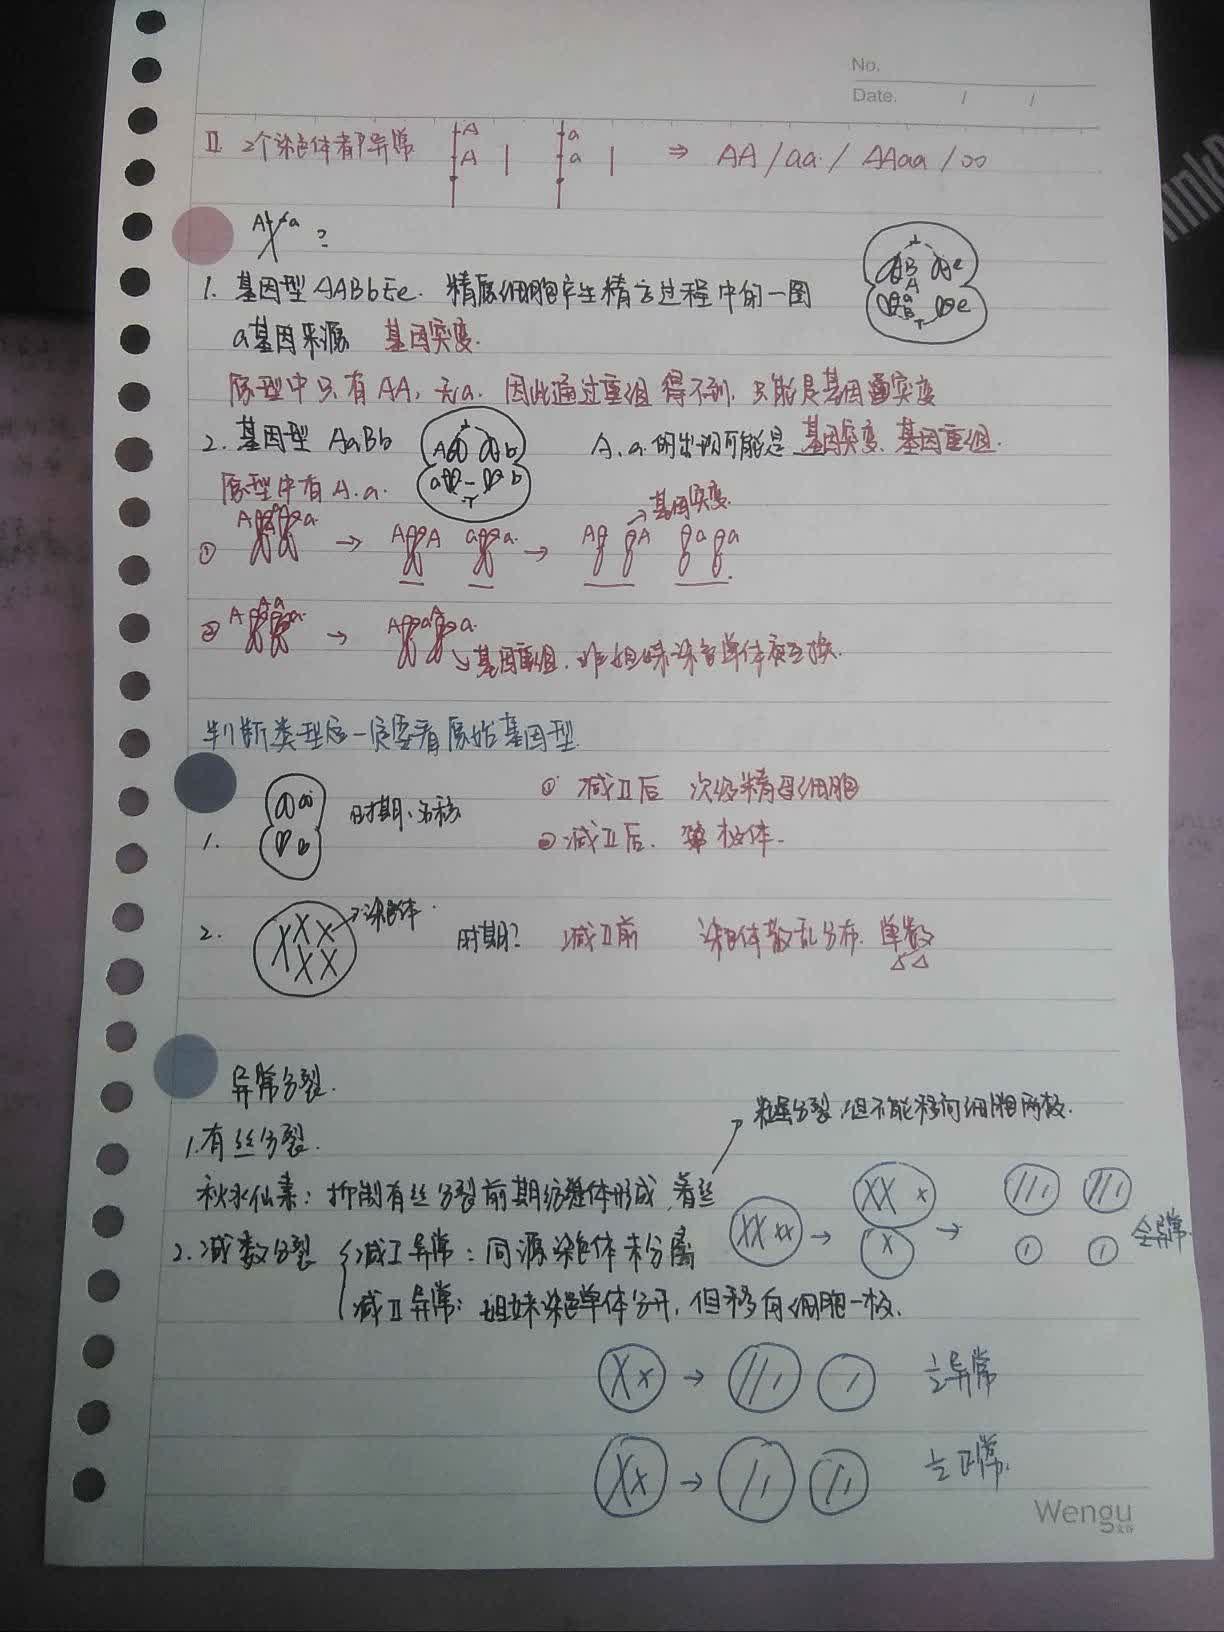 No.
Date. / /
II 2个染色体都异常 A A a a ⇒ AA / aa / AAaa / oo
A a ?
1. 基因型 AABbEe. 精原细胞产生精子过程中的一图
a基因来源 基因突变.
原型中只有AA, 无a. 因此通过重组得不到, 只能是基因突变
2. 基因型 AaBb A b a b A.a.的出现可能是 基因突变. 基因重组.
原型中有A.a.
① A a → A A a a → A A a a → 基因突变
② A A a a → A a A a 基因重组, 非姐妹染色单体交互换.
判断类型后一定要看原始基因型
1. 时期、名称 ① 减II后 次级精母细胞
② 减II后. 极体.
2. 染色体. 时期? 减II前 染色体散乱分布. 单数
异常分裂.
1.有丝分裂.
秋水仙素: 抑制有丝分裂前期纺锤体形成, 着丝
粒虽分裂, 但不能移向细胞两极.
2.减数分裂 减I异常: 同源染色体未分离
全异常.
减II异常: 姐妹染色单体分开, 但移向细胞一极.
½异常
½正常.
Wengu